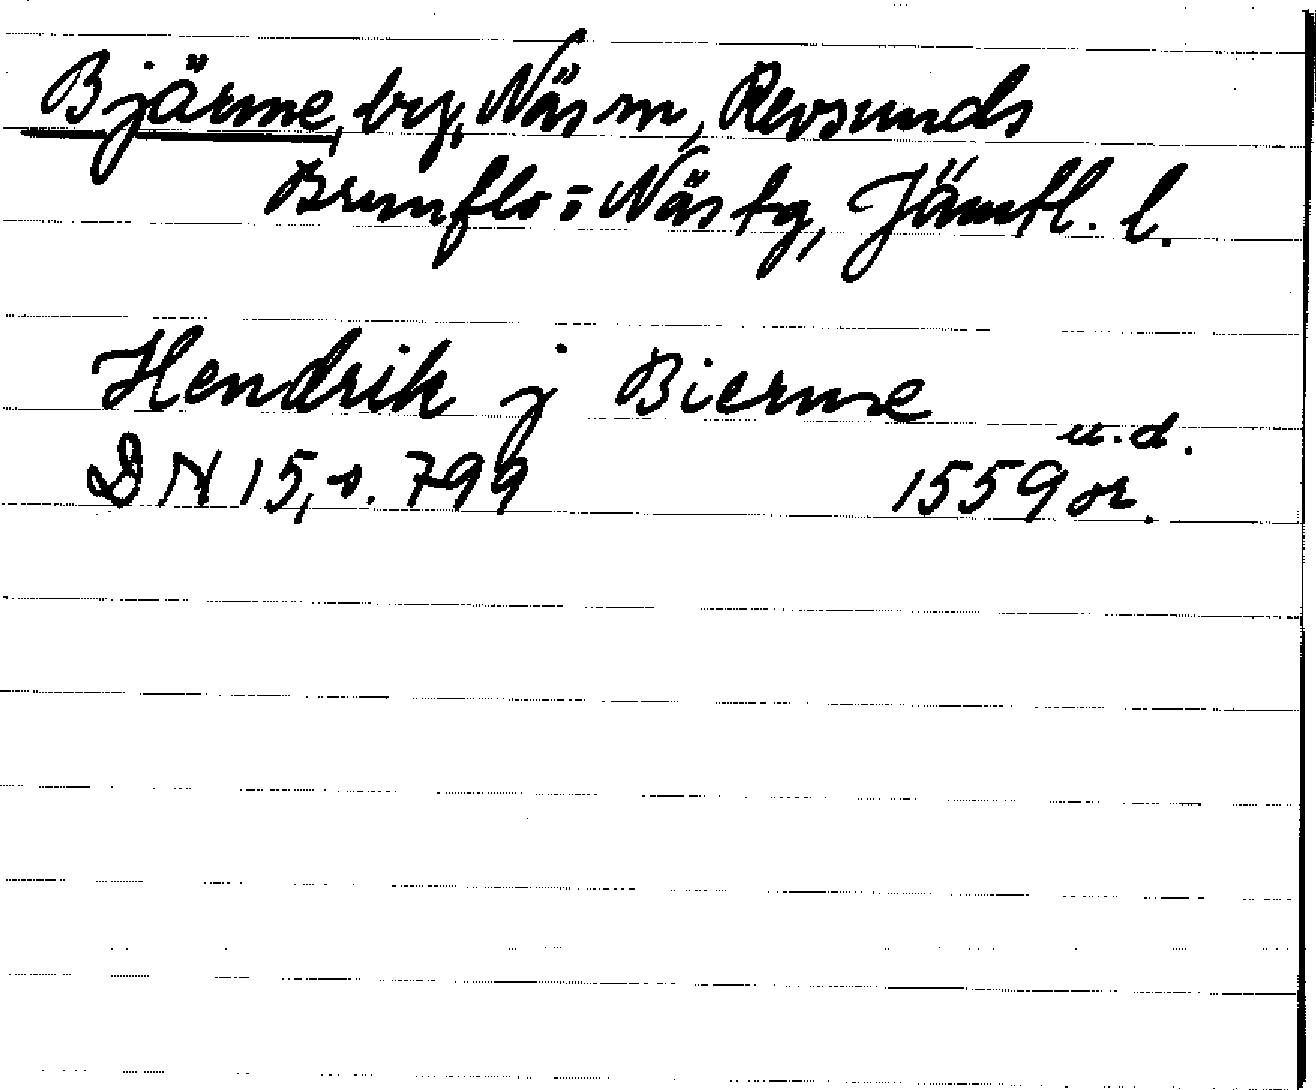 Bjärme, by, Näs sn, Revsunds
Brunflo o Näs tg, Jämtl. l.
Hendrik j Bierme
u.d.
DN 15, s. 799 1559 or.